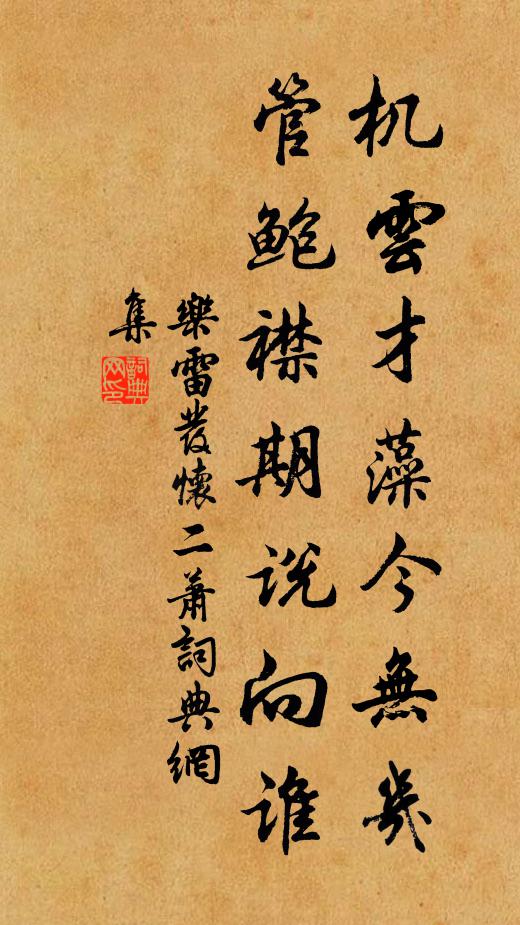 机雲才藻今無幾
管鲍襟期说向谁
樂雷發懷二蕭詞典網
集
詞典
网印